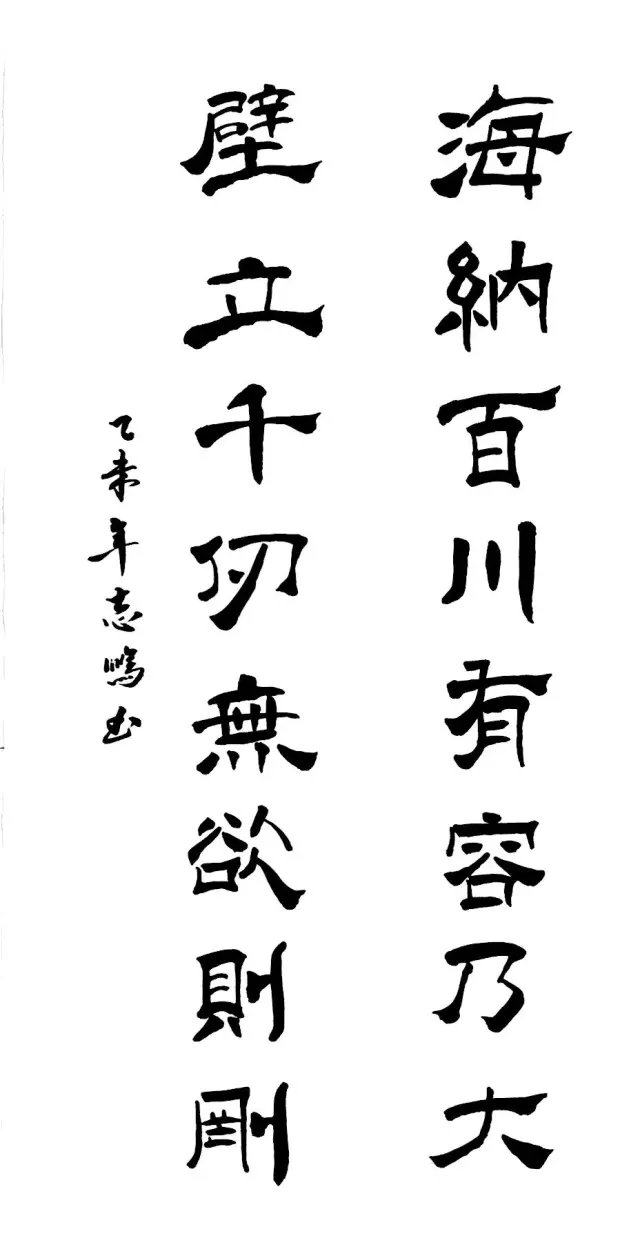 海納百川有容乃大
壁立千仞無欲則剛
乙未年志鵬书